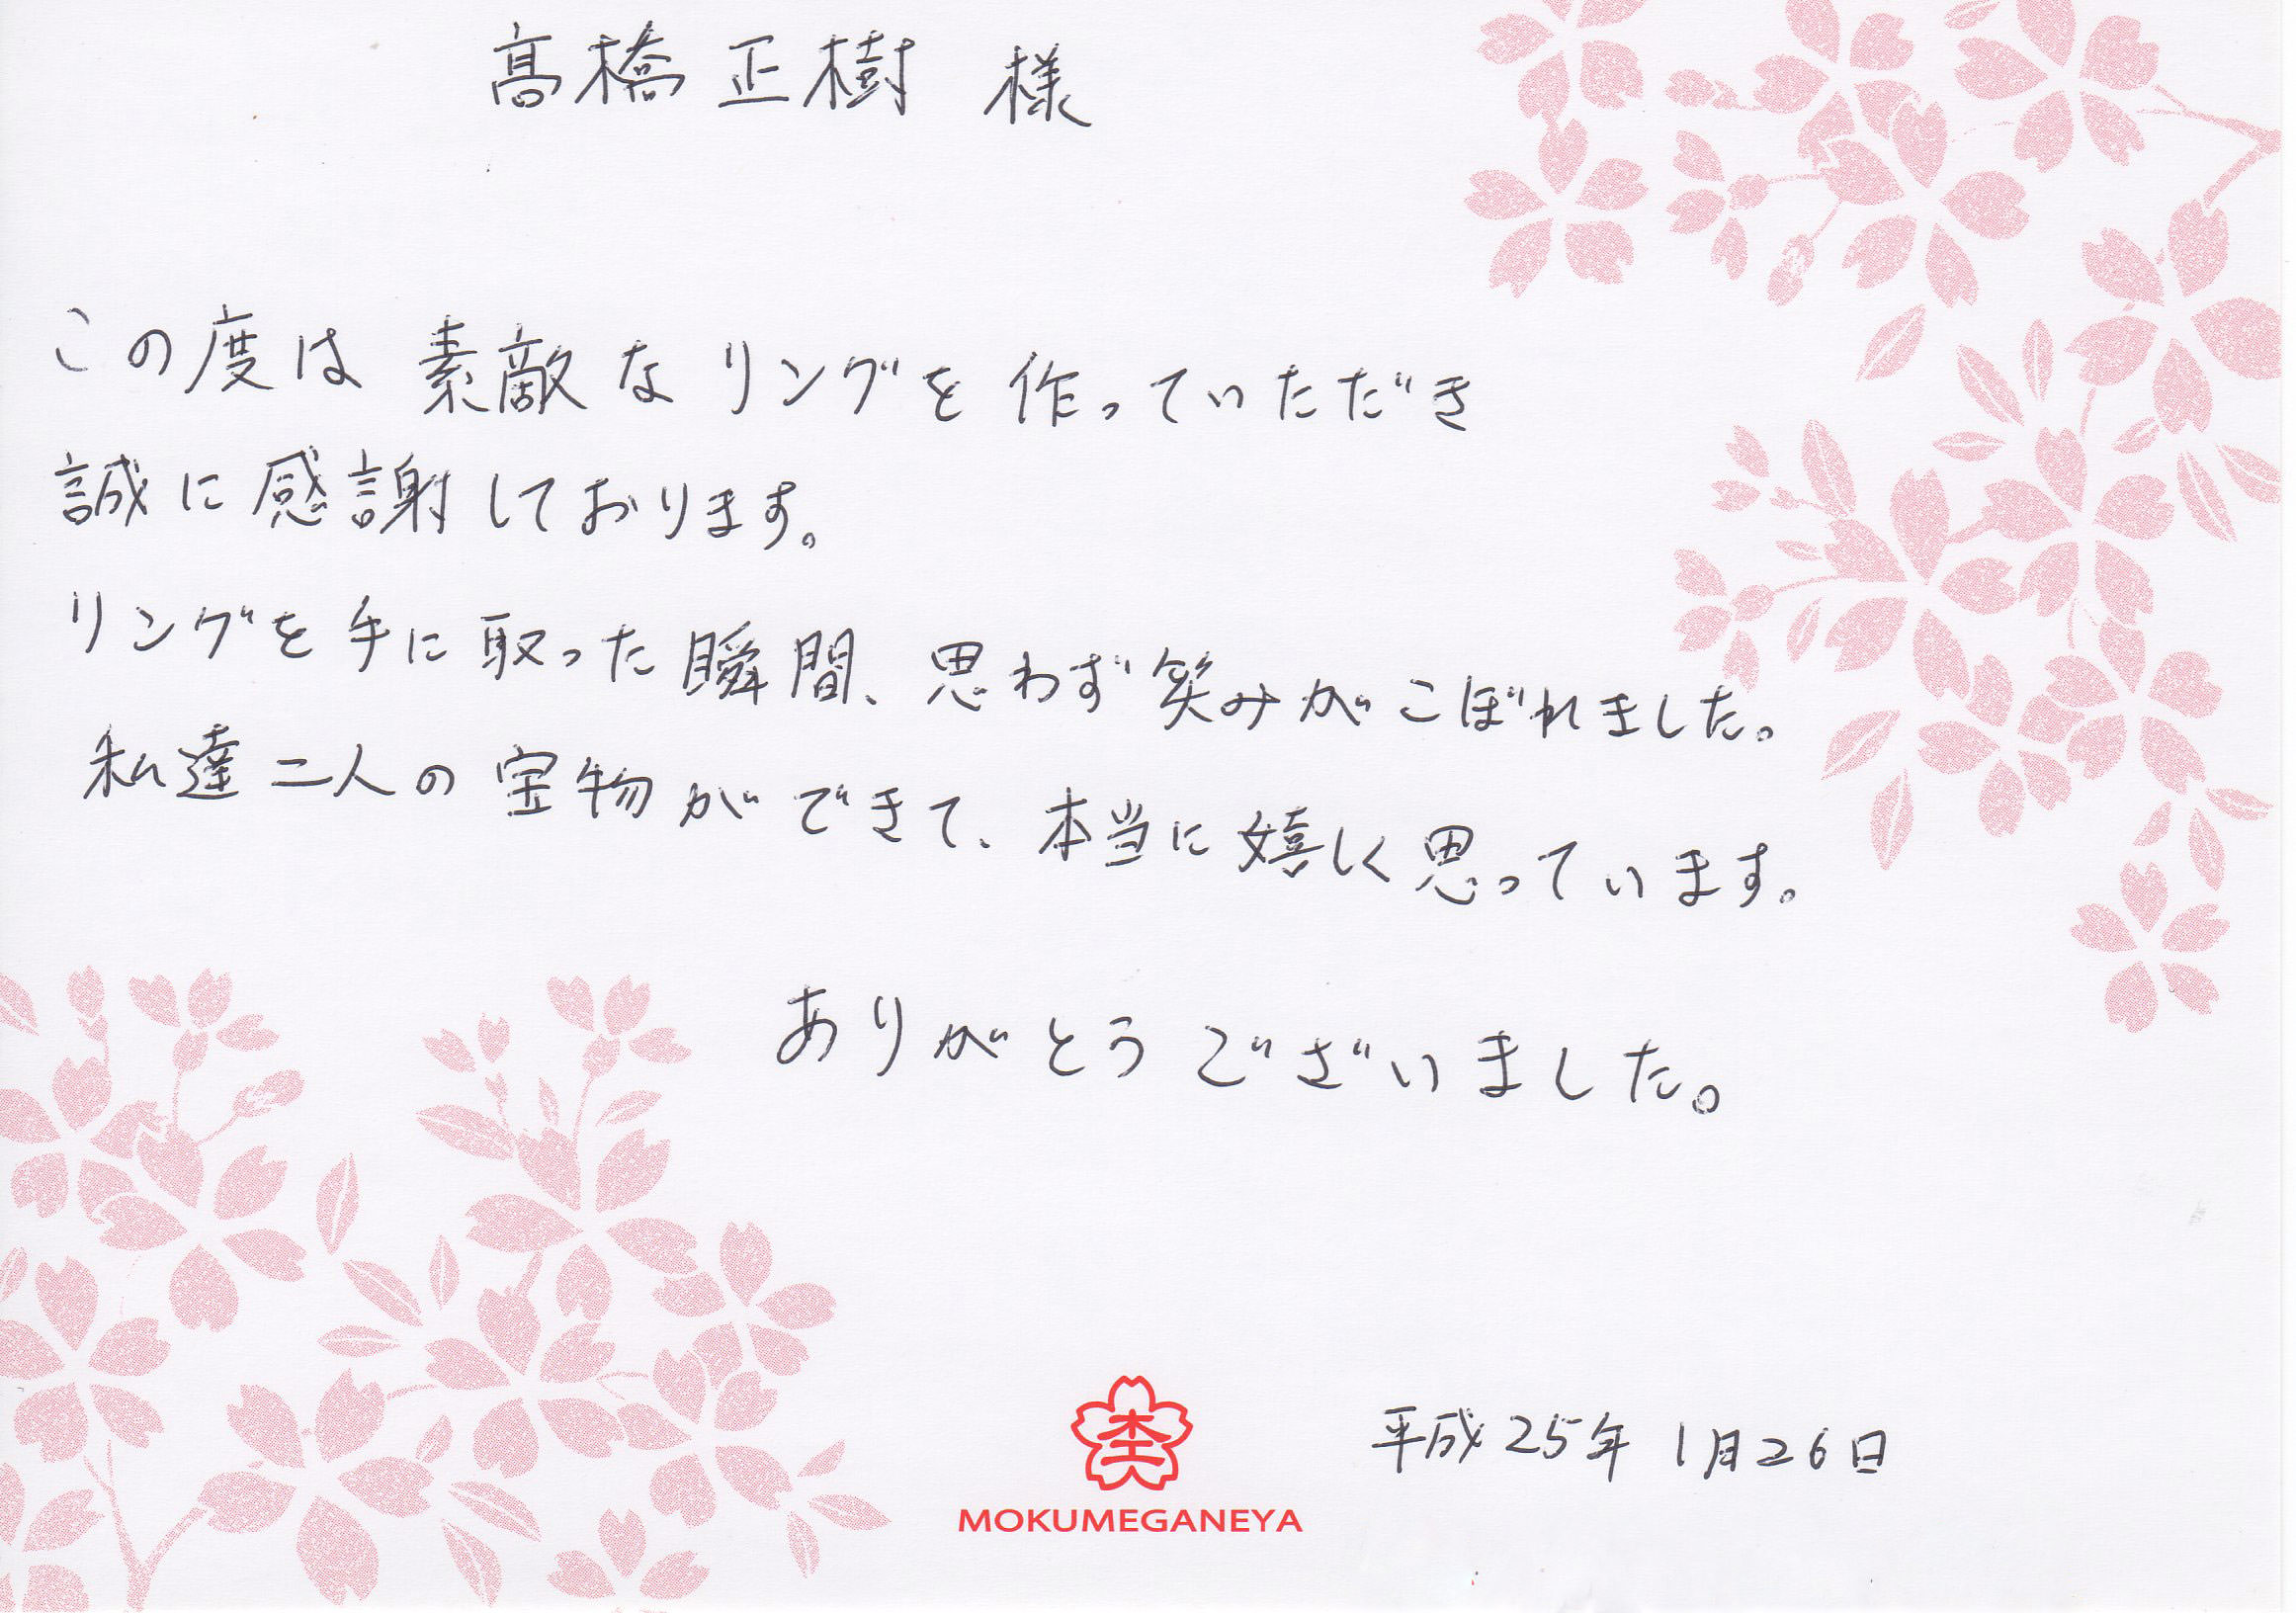 髙橋正樹 様
この度は素敵なリングを作っていただき
誠に感謝しております。
リングを手に取った瞬間、思わず笑みがこぼれました。
私達二人の宝物ができて、本当に嬉しく思っています。
ありがとうございました。
杢
MOKUMEGANEYA
平成25年 1月26日